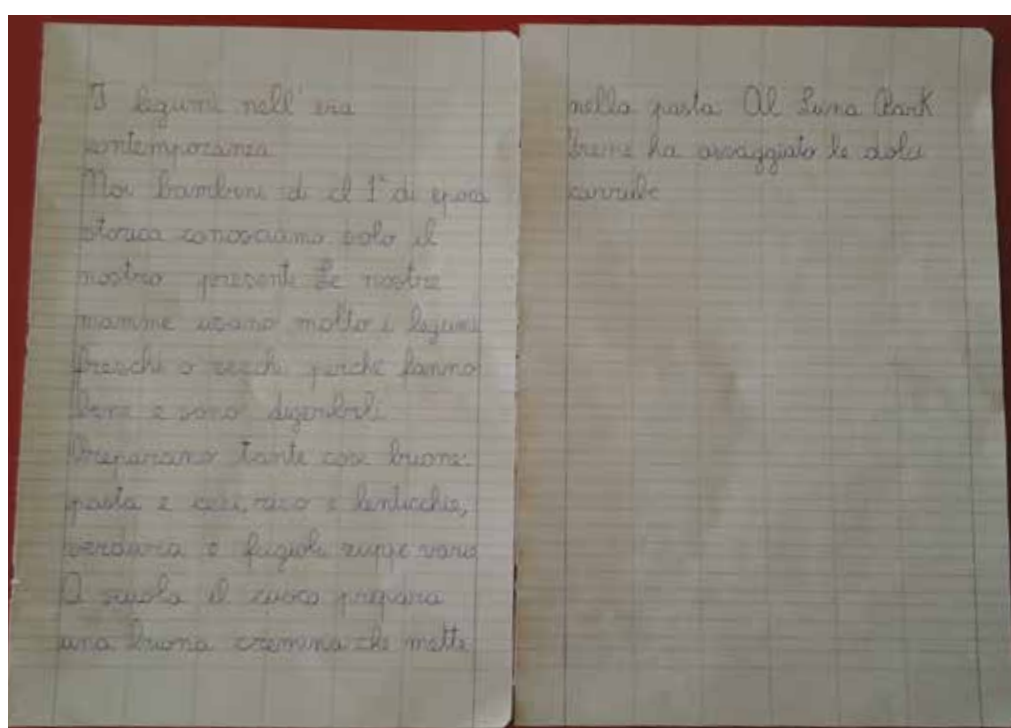 I legumi nell'era
contemporanea
Noi bambini di cl 1° di epoca
storica conosciamo solo il
nostro presente Le nostre
mamme usano molto i legumi
freschi o secchi perché fanno
bene e sono digeribili
Preparano tante cose buone:
pasta e ceci, riso e lenticchie,
verdura e fagioli zuppe varie
A scuola il cuoco prepara
una buona cremina che mette
nella pasta Al Luna Park
Irene ha assaggiato le dolci
carrube